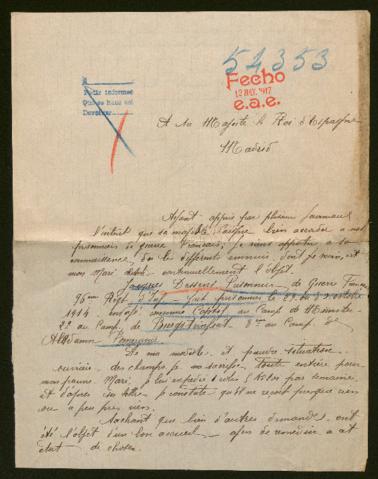 54353
Fecho
12 MAY. 1917
e.a.e.
Pedir informes
Devolver
A Sa Majesté le Roi d'Espagne
Madrid
Ayant appris par plusieurs journaux
l'intérêt que sa majesté bien accorder a nos
prisonniers de guerre Français, Je viens apporter a sa
connaissance, les différents ennuis, dont je
mon Mari continuellement l'objet.
Jacques Prisonnier de Guerre Français
96me Regt d'Inf fait prisonnier le
1914 Caporal au Camp de Munster
au Camp de au Camp d'
De ma modeste et pauvre situation
ouvrière des champs je me sacrifie toute entière pour
mon pauvre Mari, je lui expédie colis 5 Kilos par semaine
et d'après sa lettre je constate qu'il ne reçoit presque rien
ou a peu près rien.
Sachant que bien d'autres demandes ont
été l'objet d'un bon accueil afin de remédier a cet
état de choses